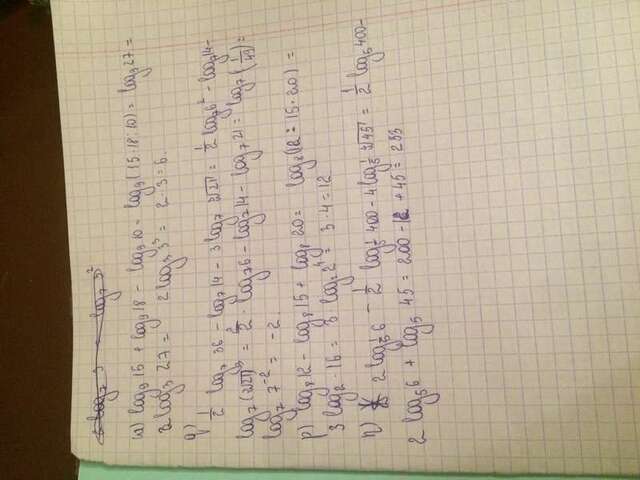 log₇ 3 log₇ 3²
ю) log₉15 + log₉18 - log₉10 = log₉(15·18:10) = log₉27 =
2log₃ 27 = 2log₃ 3³ = 2·3=6.
q)
1/2 log₇ 36 - log₇14 - 3log₇ ³√21 = 1/2 log₇6² - log₇14 -
log₇(³√21)³ = 2/2 · log₇6 - log₇14 - log₇21 = log₇(1/49) =
log₇ 7⁻² = -2.
p) log₈12 - log₈15 + log₈20 = log₈(12 : 15·20) =
3log₂·16 = 3log₂2⁴ = 3·4=12
η) 2log_{1/5}6 - 1/2 log_{1/5}400 - 4log_{1/5} ⁴√45 = 1/2 log₅400 -
2log₅6 + log₅45 = 200 - 12 + 45 = 233